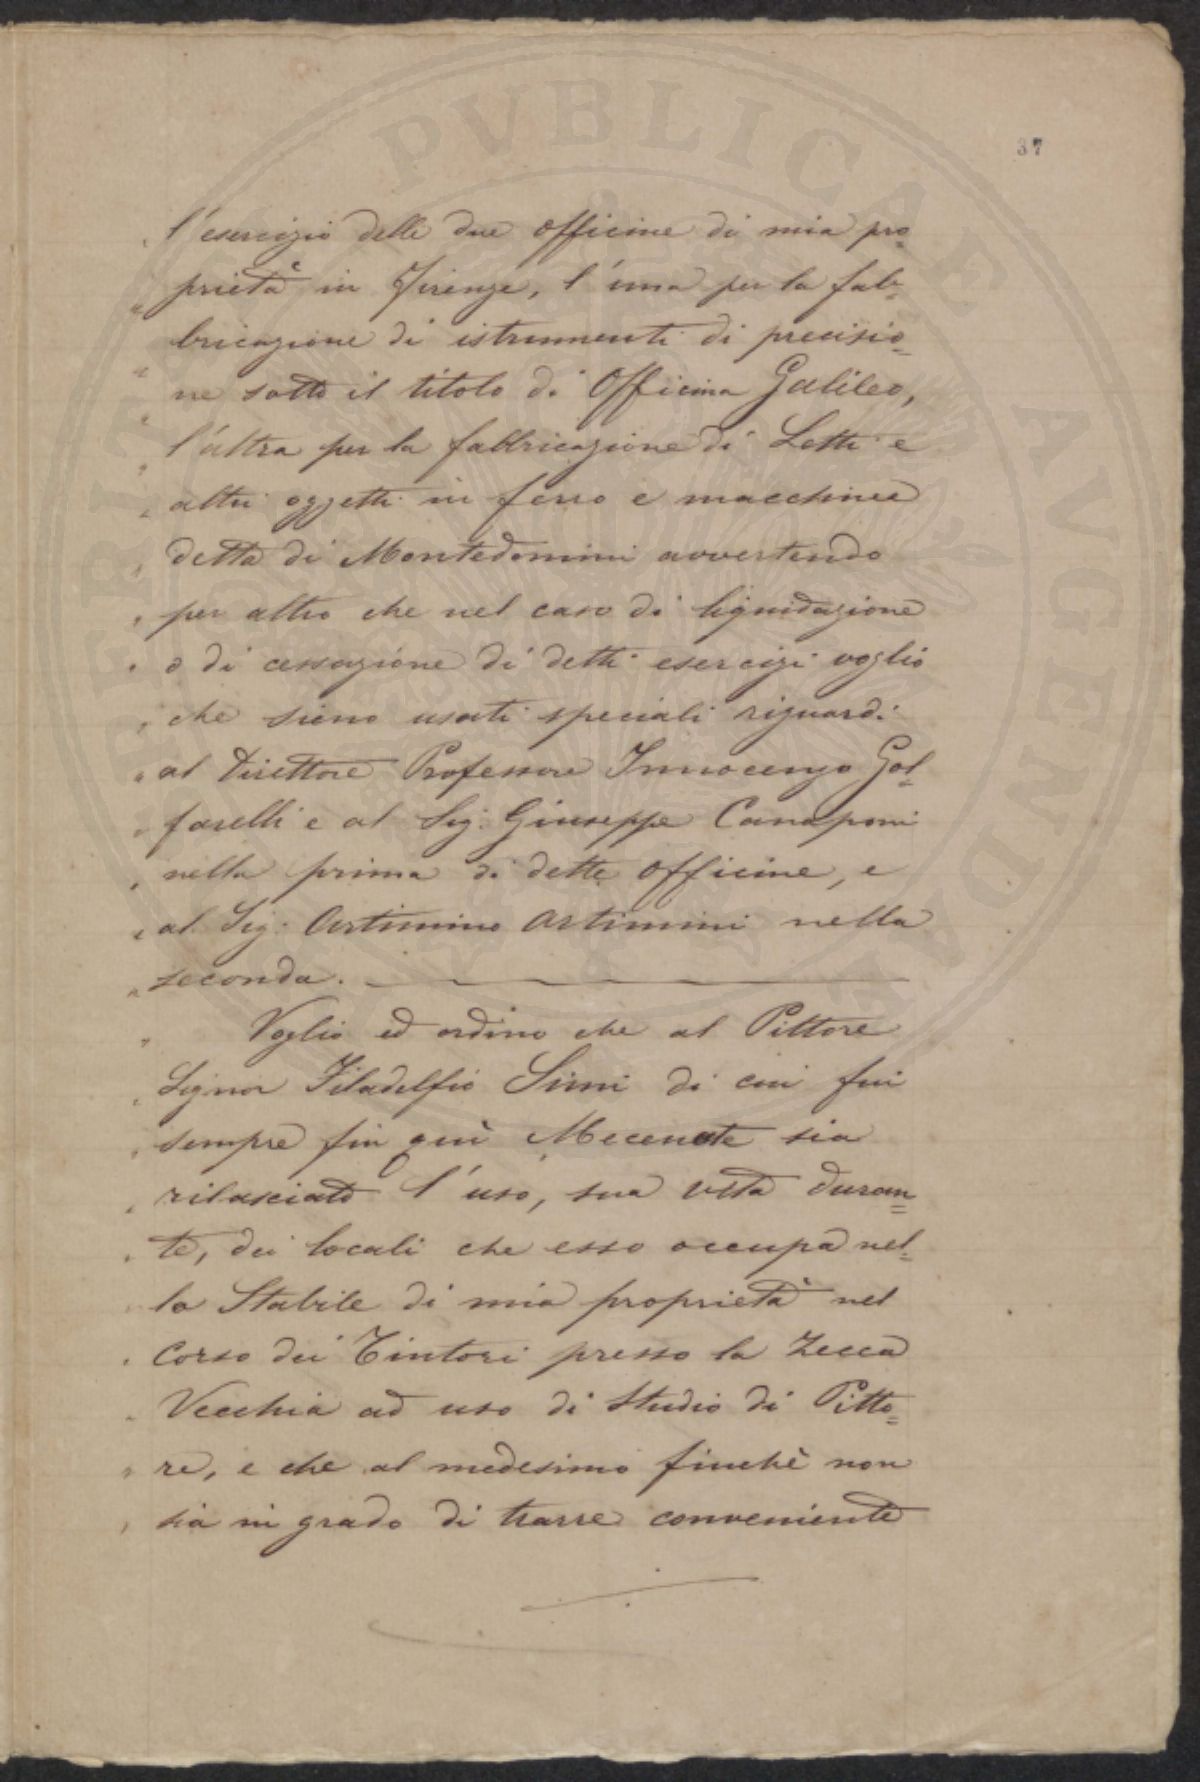 37
„ l'esercizio delle due officine di mia pro=
„ prietà in Firenze, l'una per la fab=
„ bricazione di istrumenti di precisio=
„ ne sotto il titolo di Officina Galileo,
„ l'altra per la fabbricazione di Letti e
„ altri oggetti in ferro e macchine
„ detta di Montedomini avvertendo
„ per altro che nel caso di liquidazione
„ o di cessazione di detti esercizi voglio
„ che sieno usati speciali riguardi
„ al Direttore Professore Innocenzo Gol=
„ farelli e al Sig. Giuseppe Canaponi
„ nella prima di dette officine, e
„ al Sig. Artimino Artimini nella
„ seconda.
„ Voglio ed ordino che al Pittore
„ Signor Filadelfio Simi di cui fui
„ sempre fin quì Mecenate sia
„ rilasciato l'uso, sua vita duran=
„ te, dei locali che esso occupa nel=
„ lo Stabile di mia proprietà nel
„ Corso dei Tintori presso la Zecca
„ Vecchia ad uso di Studio di Pitto=
„ re, e che al medesimo finchè non
„ sia in grado di trarre conveniente
PVBLICAE AVGENDAE